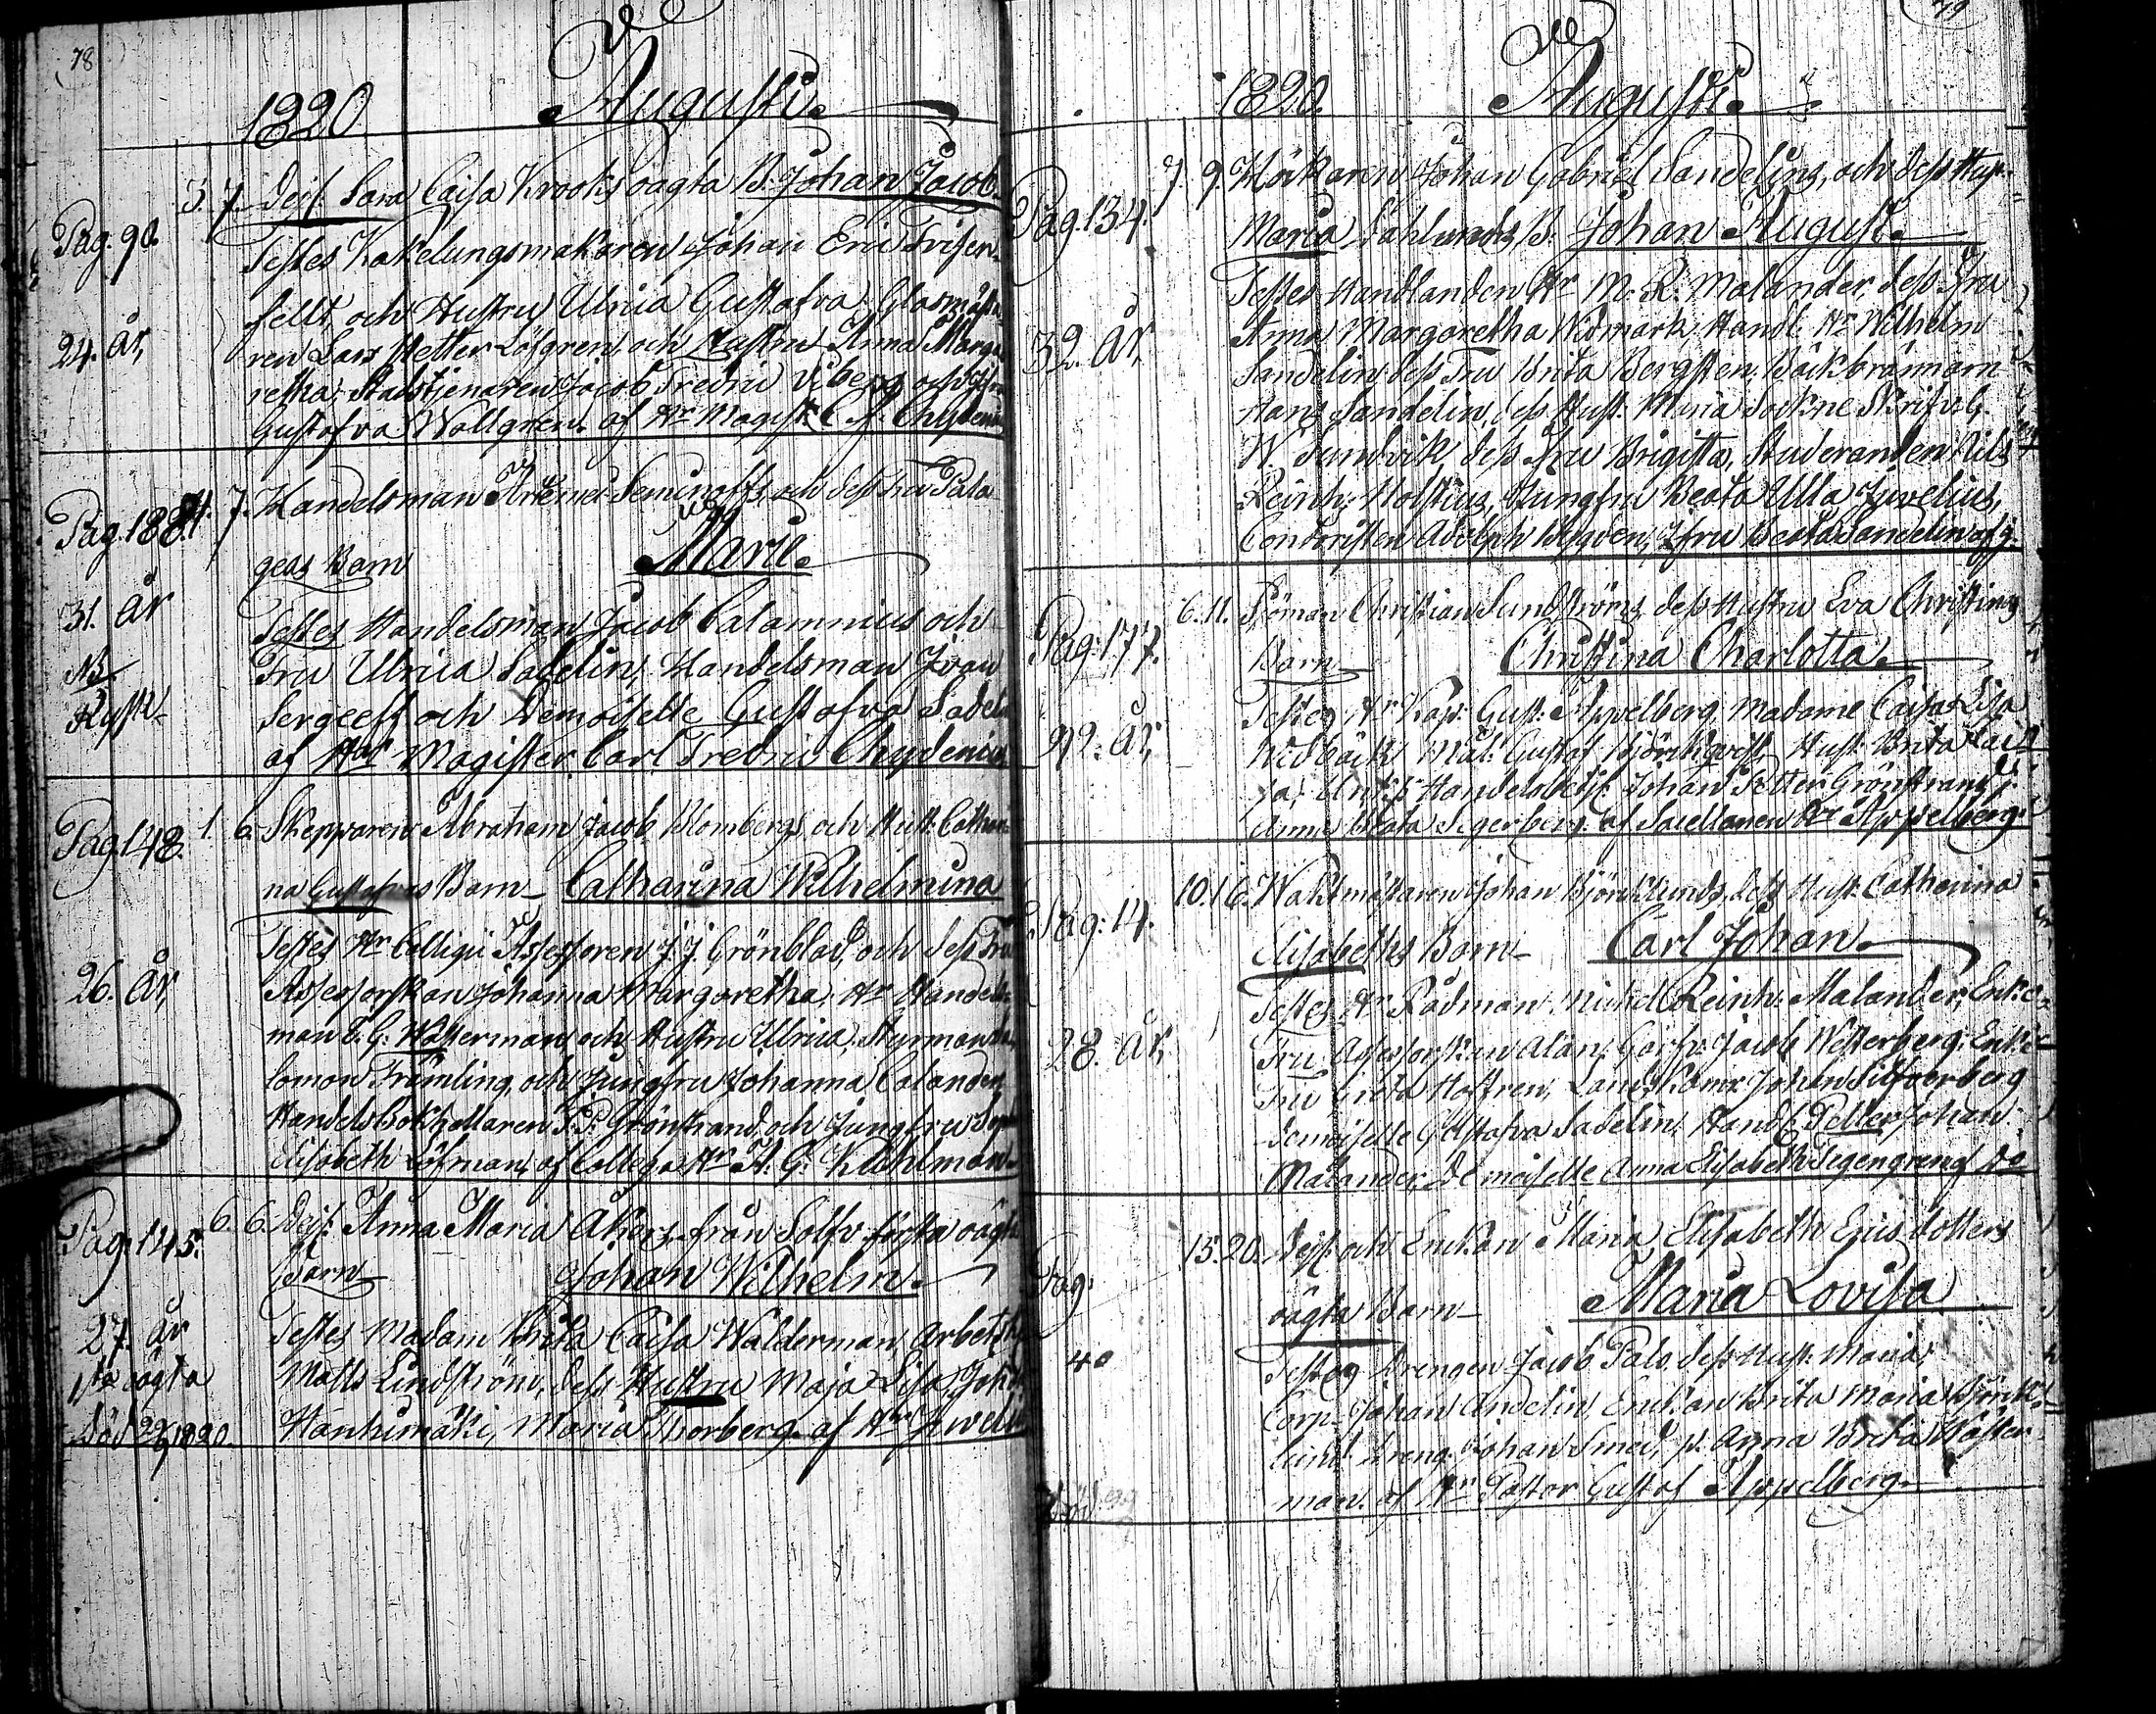 78
1820 Augusti
Pag. 90. 3. 7. Dej. Lena Caisa Krooks oägta B. Johan Jacob.
Testes Kakelungsmakaren Johan Eric Frisen-
felt, och Hustru Ulrica Gustafva, Glasmästa-
24. år, ren Lars Petter Löfgren, och Hustru Anna Marga-
retha, Stadstjenaren Jacob Fredric Viberg och
Gustafva Wallgren. af Hr Magist. C. F. Chydenius
Pag. 188. 4. 7. Handelsman Semenoffs, och dess Fru Pala-
geas Barn Marie
31. år Testes Handelsman Jacob Calamnius och
NB Fru Ulrica Sadelin, Handelsman Ivan
Rysk. Sergeeff och Demoiselle Gustafva Sadelin
af Herr Magister Carl Fredric Chydenius
Pag. 148. 1. 6. Skepparen Abraham Jacob Blombergs, och Hust. Cathari-
na Gustafvas Barn Catharina Wilhelmina
Testes Hr Collegii Assessoren J. J. Grönblad, och dess Fru
26. år, Assessorskan Johanna Margaretha, Hr Handels-
man E. G. Wasserman, och Hustru Ulrica, Styrman Sa-
lomon Främling, och Jungfru Johanna Calander,
Handels Bokhållaren J. P. Grönstrand och Jungfru
Elisabeth Löfman, af Collega Hr A. G. Kuhlman.
Pag. 145. 6. 6. Dej. Anna Maria Åkers från Solf första oägta
Barn Johan Wilhelm.
27. år Testes Madam Brita Caisa Wälderman, Arbetsk.
1sta oägta Matts Lindström, dess Hustru Maja Lisa, Joh.
Död 1820. Hanhimäki, Maria Thorberg. af Hr
79
1820. Augusti
Pag. 134. 7. 9. Hökaren Johan Gabriel Sandelins, och dess Hust.
Maria Dahlunds B. Johan August.
Testes Handlanden Hr M. R. Malander, dess Fru
Anna Margaretha Widmark, Handl. Hr Wilhelm
32. år, Sandelin, dess Fru Brita Bergsten, Bäckbrännaren
Hans Sandelin, dess Hust. Maria Sockne Skrifv. G.
W. Sundvik dess Fru Brigitta, Studeranden Nils
Reinh. Holstius, Jungfru Beata Ulla Juvelius,
Contoristen Adolph Bladen, Jfru Beata Sandelin af
Pag. 177. 6. 11. Sjöman Christian Sundströms, dess Hustru Eva Christinas
Barn Christina Charlotta.
Testes Hr Kap. Gust. Appelberg, Madame Caisa Lisa
92. år, Widbäck Mål. Gustaf Björkqvist, Hust. Brita Cai-
sa, Handelsbetj. Johan Petter Grönstrand, j.
Anna Beata Segerberg. af Sacellanen Hr Appelberg.
Pag: 14. 10. 16. Waktmästaren Johan Björklunds, dess Hust. Catharina
Elisabeths Barn Carl Johan.
Testes Hr Rådman Michel Reinh. Malander, Enk.
28. år, Fru Assessorskan Alan, Garfv. Jacob Westerberg, Enk.
Fru Greta Hoffren, Lands Kamr. Johan Silfverberg
Demoiselle Gustafva Sadelin, Handl. Petter Johan
Malander, Demoiselle Anna Elisabeth Segengren af
Pag: 15. 20. Dej. och Enckan Maria Elisabeth Ericsdotters
oägta Barn Maria Lovisa
40 Testes Drengen Jacob Palo, dess Hust. Maria,
Corp. Johan Andelin, Enckan Brita Maria Björk-
lund, Dreng. Johan Smed, p. Anna Brita Wäster-
man. af Hr Pastor Gustaf Appelberg.